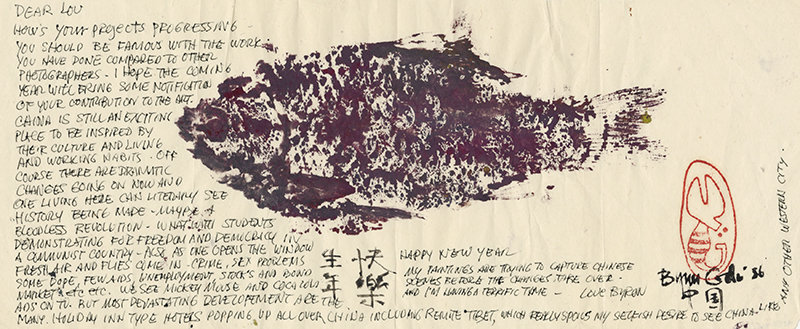 DEAR LOU
HOW'S YOUR PROJECTS PROGRESSING -
YOU SHOULD BE FAMOUS WITH THE WORK
YOU HAVE DONE COMPARED TO OTHER
PHOTOGRAPHERS. I HOPE THE COMING
YEAR WILL BRING SOME NOTIFICATION
OF YOUR CONTRIBUTION TO THE ART.
CHINA IS STILL AN EXCITING
PLACE TO BE INSPIRED BY
THEIR CULTURE AND LIVING
AND WORKING HABITS. OFF
COURSE THERE ARE DRAMATIC
CHANGES GOING ON NOW AND
ONE LIVING HERE CAN LITERALLY SEE
HISTORY BEING MADE - MAYBE A
BLOODLESS REVOLUTION. WHAT WITH STUDENTS
DEMONSTRATING FOR FREEDOM AND DEMOCRACY IN
A COMMUNIST COUNTRY - ALSO AS ONE OPENS THE WINDOW
FRESH AIR AND FLIES COME IN. CRIME, SEX PROBLEMS
SOME DOPE, FEW AIDS, UNEMPLOYMENT, STOCKS AND BOND
MARKETS ETC ETC. WE SEE MICKEY MOUSE AND COCA COLA
ADS ON TV. BUT MOST DEVASTATING DEVELOPEMENT ARE THE
MANY HOLIDAY INN TYPE HOTELS POPPING UP ALL OVER CHINA INCLUDING REMOTE TIBET, WHICH REALLY SPOILS MY SELFISH DESIRE TO SEE CHINA LIKE
ANY OTHER WESTERN CITY.
快樂
生年
HAPPY NEW YEAR
MY PAINTINGS ARE TRYING TO CAPTURE CHINESE
SCENES BEFORE THE CHANGES TAKE OVER.
AND I'M HAVING A TERRIFIC TIME - LOVE BYRON
86
中国